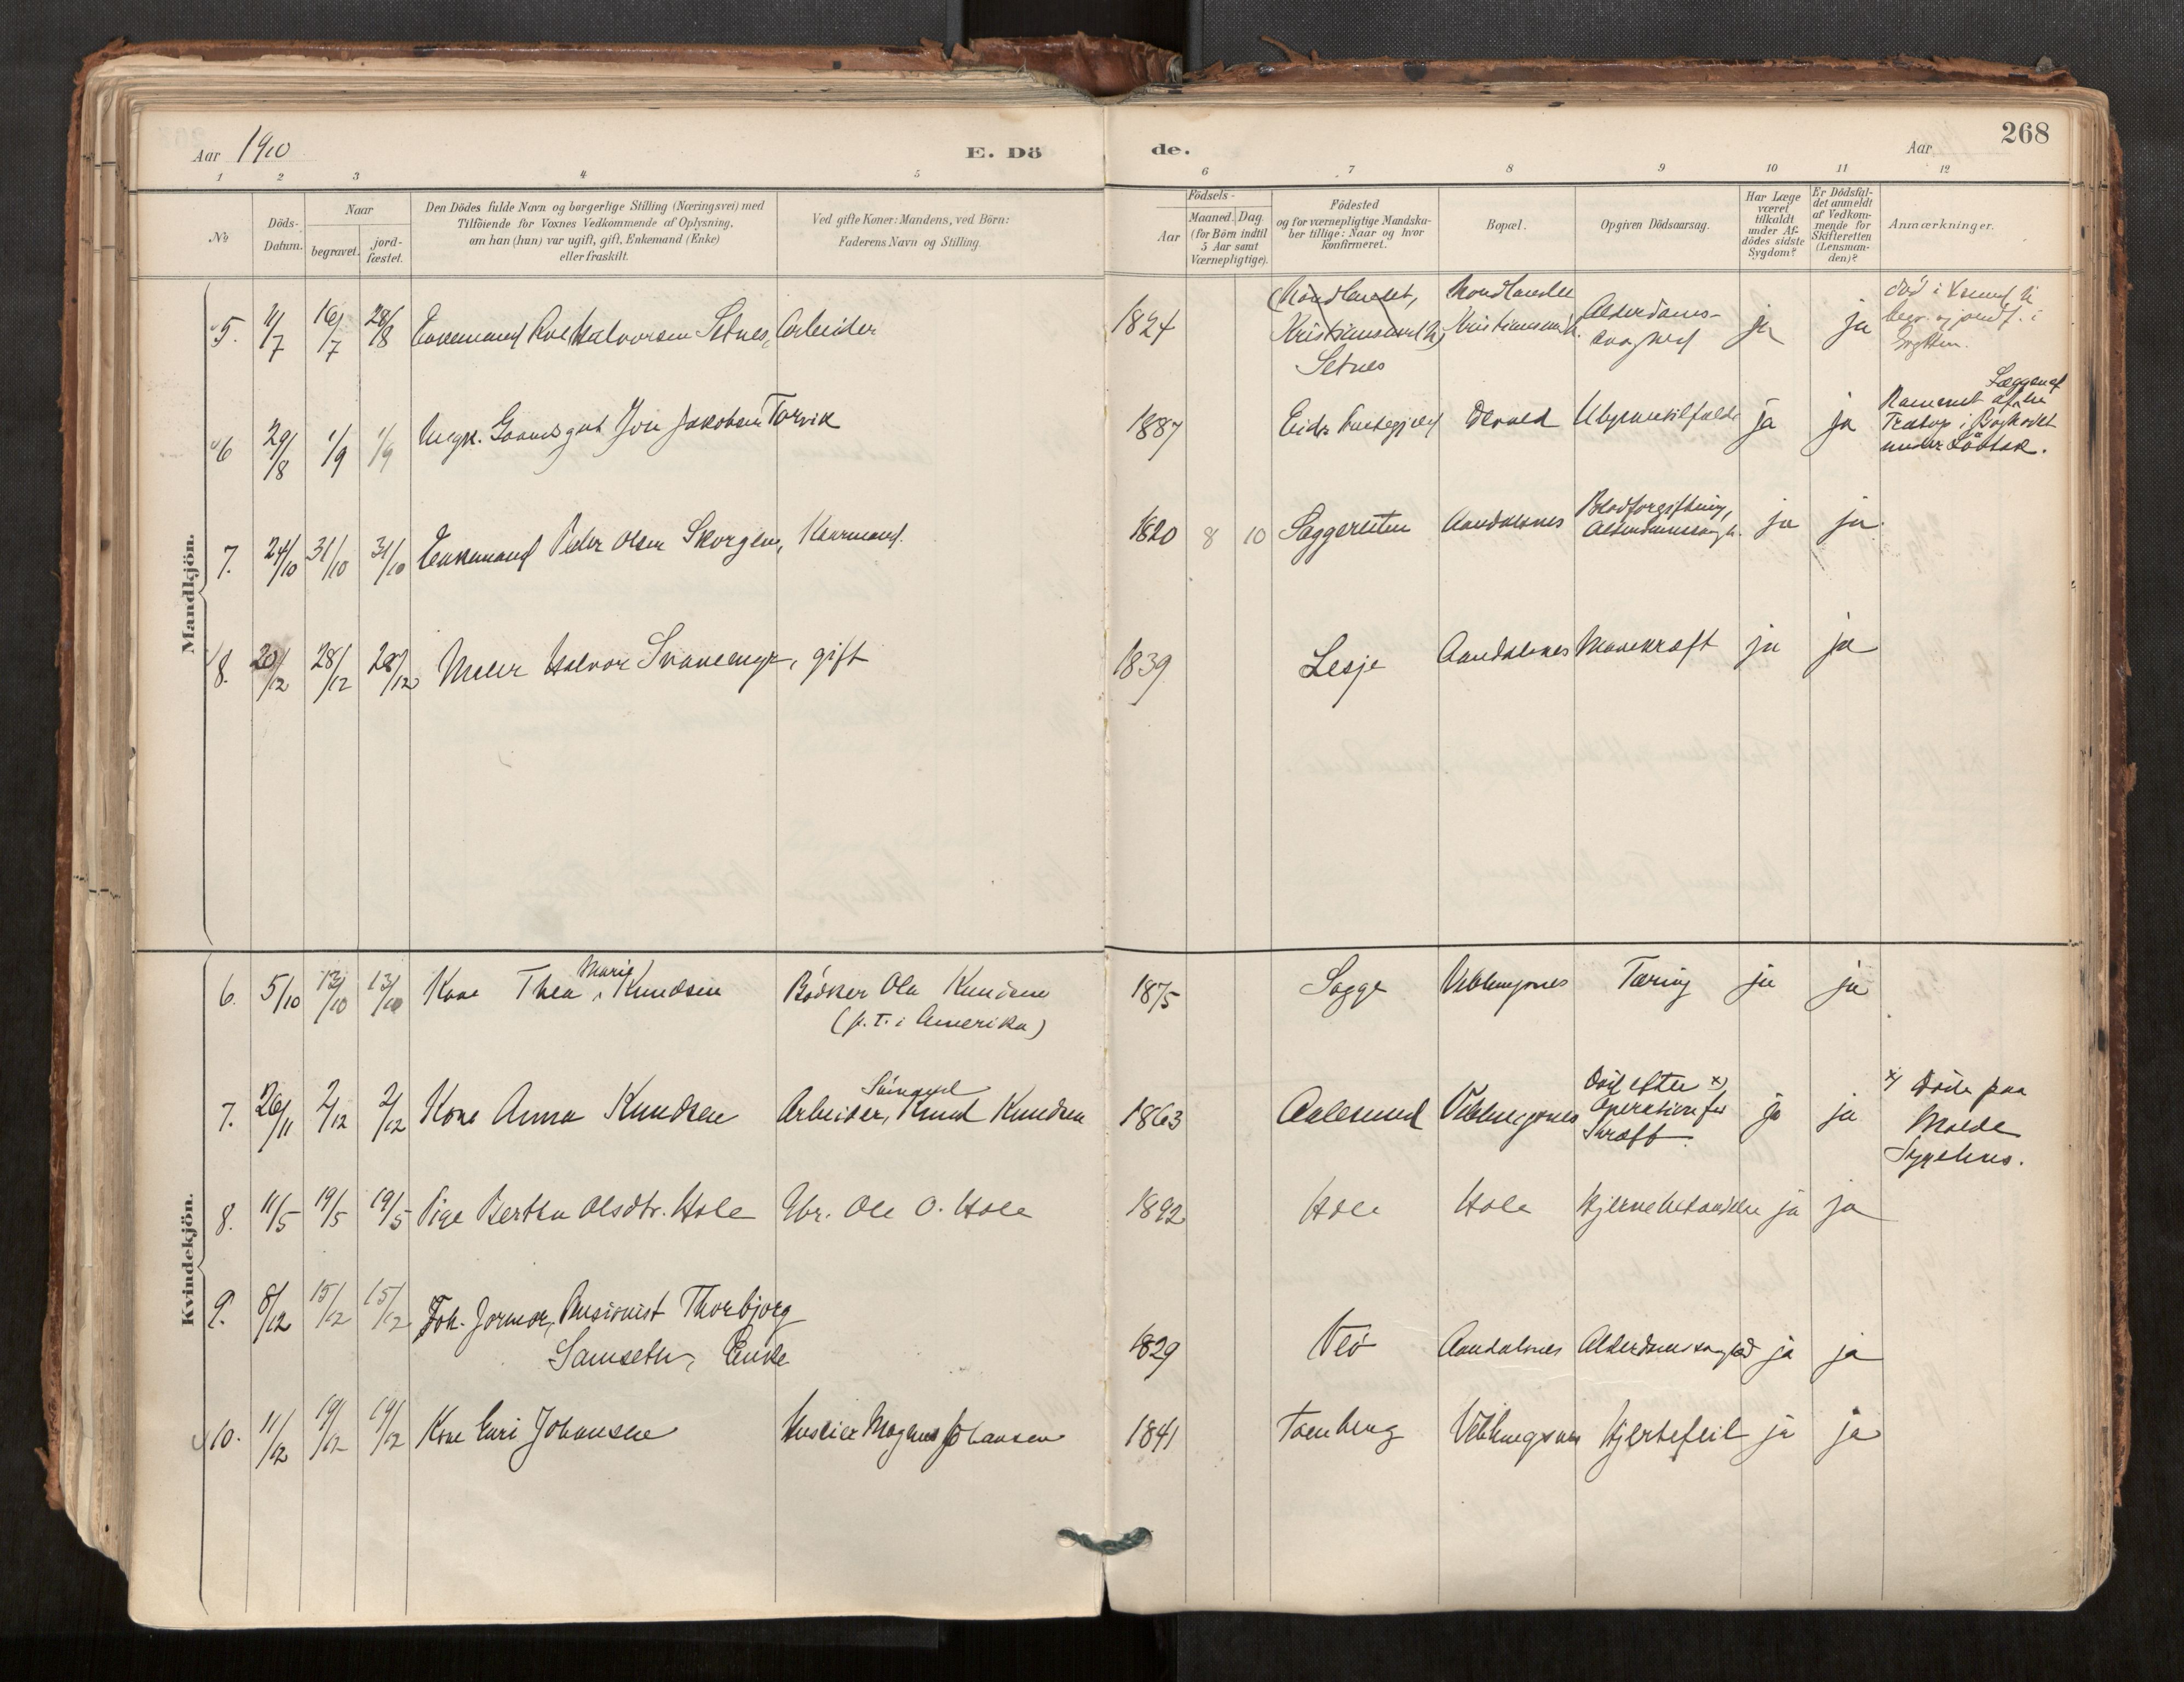 Aar 1910
E. Döde.
Aar
268
1 2 3 4 5 6 7 8 9 10 11 12
No
Döds-Datum.
Naar
begravet.
jordfæstet.
Den Dödes fulde Navn og borgerlige Stilling (Næringsvei) med
Tilföiende for Voxnes Vedkommende af Oplysning,
om han (hun) var ugift, gift, Enkemand (Enke)
eller fraskilt.
Ved gifte Koner: Mandens, ved Börn:
Faderens Navn og Stilling.
Födsels-
Aar
Maaned. Dag.
(for Börn indtil
5 Aar samt
Værnepligtige).
Födested
og for værnepligtige Mandska-
ber tillige: Naar og hvor
konfirmeret.
Bopæl.
Opgiven Dödsaarsag.
Har Læge
været
tilkaldt
under Af-
dödes sidste
Sygdom?
Er Dödsfal-
det anmeldt
af Vedkom-
mende for
Skifteretten
(Lensman-
den)?
Anmærkninger.
Mandkjön.
5. 11/7 16/7 28/8 Enkemand Roe Halvorsen Setnes, Arbeider 1824 (Nordlandet, Kristianssund N) Setnes Nordlandet Kristianssund N. Alderdoms-svaghed ja ja
6 29/8 1/9 1/9 Ungk. Gaardsgut Jon Jakobsen Torvik 1887 Eids Prestegjeld Devold Ulykkestilfælde ja ja
under Löbsak.
7. 24/10 31/10 31/10 Enkemand Peder Olsen Skorgen, Kaarmand. 1820 8 10 Soggeresten Aandalsnes Blodforgiftning, Alderdomssvagh. ja ja
8. 20/12 28/12 28/12 Maler Halvor Svanenge, gift 1839 Lesje Aandalsnes Mavekræft ja ja
Kvindekjön.
6. 5/10 13/10 13/10 Kone Thea Marie Knudsen Bödker Ola Knudsen 1875 Sogge Veblungsnes Tæring ja ja
(p.t. i Amerika)
7. 26/11 2/12 2/12 Kone Anna Knudsen Arbeider, Knud Knudsen 1863 Aalesund Veblungsnes Död efter x) Operation for Kræft ja ja x) Döde paa Molde Sygehus.
8. 11/5 19/5 19/5 Pige Bertha Olsdtr. Hole Gbr. Ole O. Hole 1892 Hole Hole Hjernebetændelse ja ja
9. 8/12 15/12 15/12 Fhv. Jormor, Pensionist Thorbjorg
Samseth, Enke 1829 Veö Aandalsnes Alderdomssvaghed ja ja
10. 11/12 19/12 19/12 Kone Guri Johansen Huseier Magnus Johansen 1841 Tornberg Veblungsnes Hjertefeil ja ja